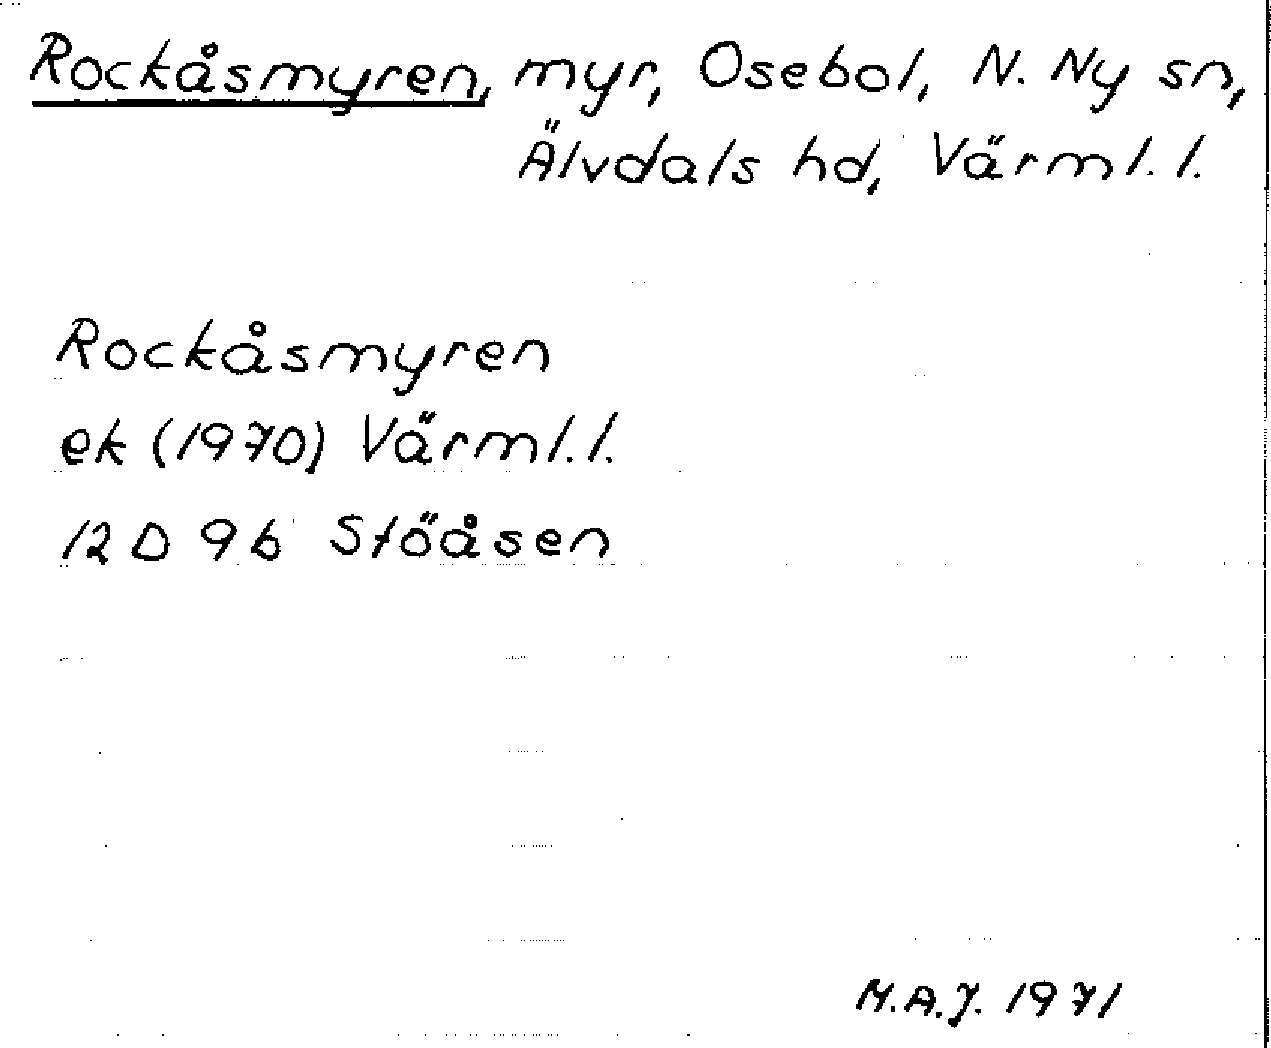 Rockåsmyren, myr, Osebol, N. Ny sn,
Älvdals hd, Värml. l.
Rockåsmyren
ek (1970) Värml. l.
12 D 9b Stöåsen
M.A.J. 1971